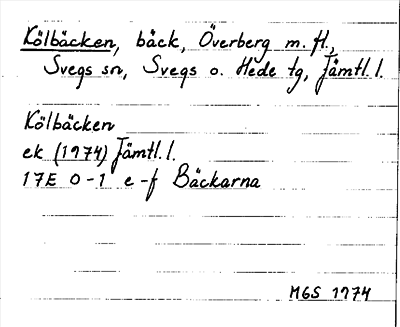 Kölbäcken, bäck, Överberg m. fl.,
Svegs sn, Svegs o. Hede tg, Jämtl. l.
Kölbäcken
ek (1974) Jämtl. l.
17E 0-1 e-f Bäckarna
MGS 1974